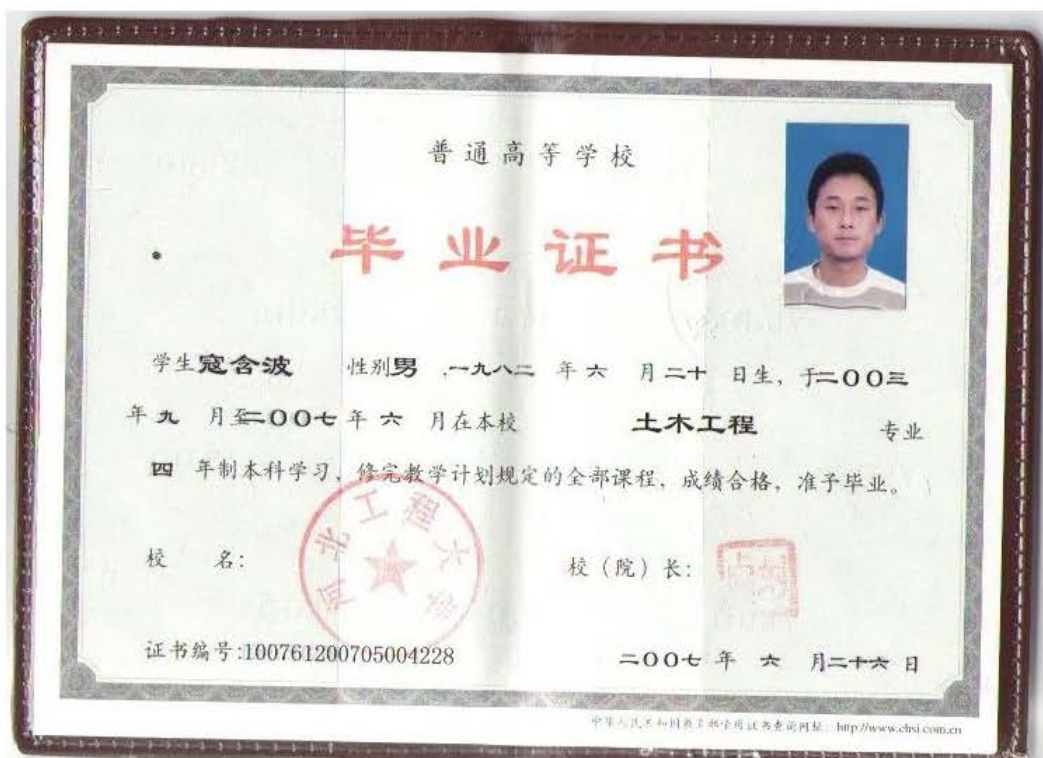 普通高等学校
毕业证书
学生寇含波 性别男 ,一九八二 年 六 月 二十 日生，于二〇〇三
年 九 月至二〇〇七 年 六 月在本校 土木工程 专业
四 年制本科学习，修完教学计划规定的全部课程，成绩合格，准予毕业。
河北工程大学
校 名： 校（院）长：
证书编号:100761200705004228 二〇〇七 年 六 月二十六 日
中华人民共和国教育部学历证书查询网址：http://www.chsi.com.cn